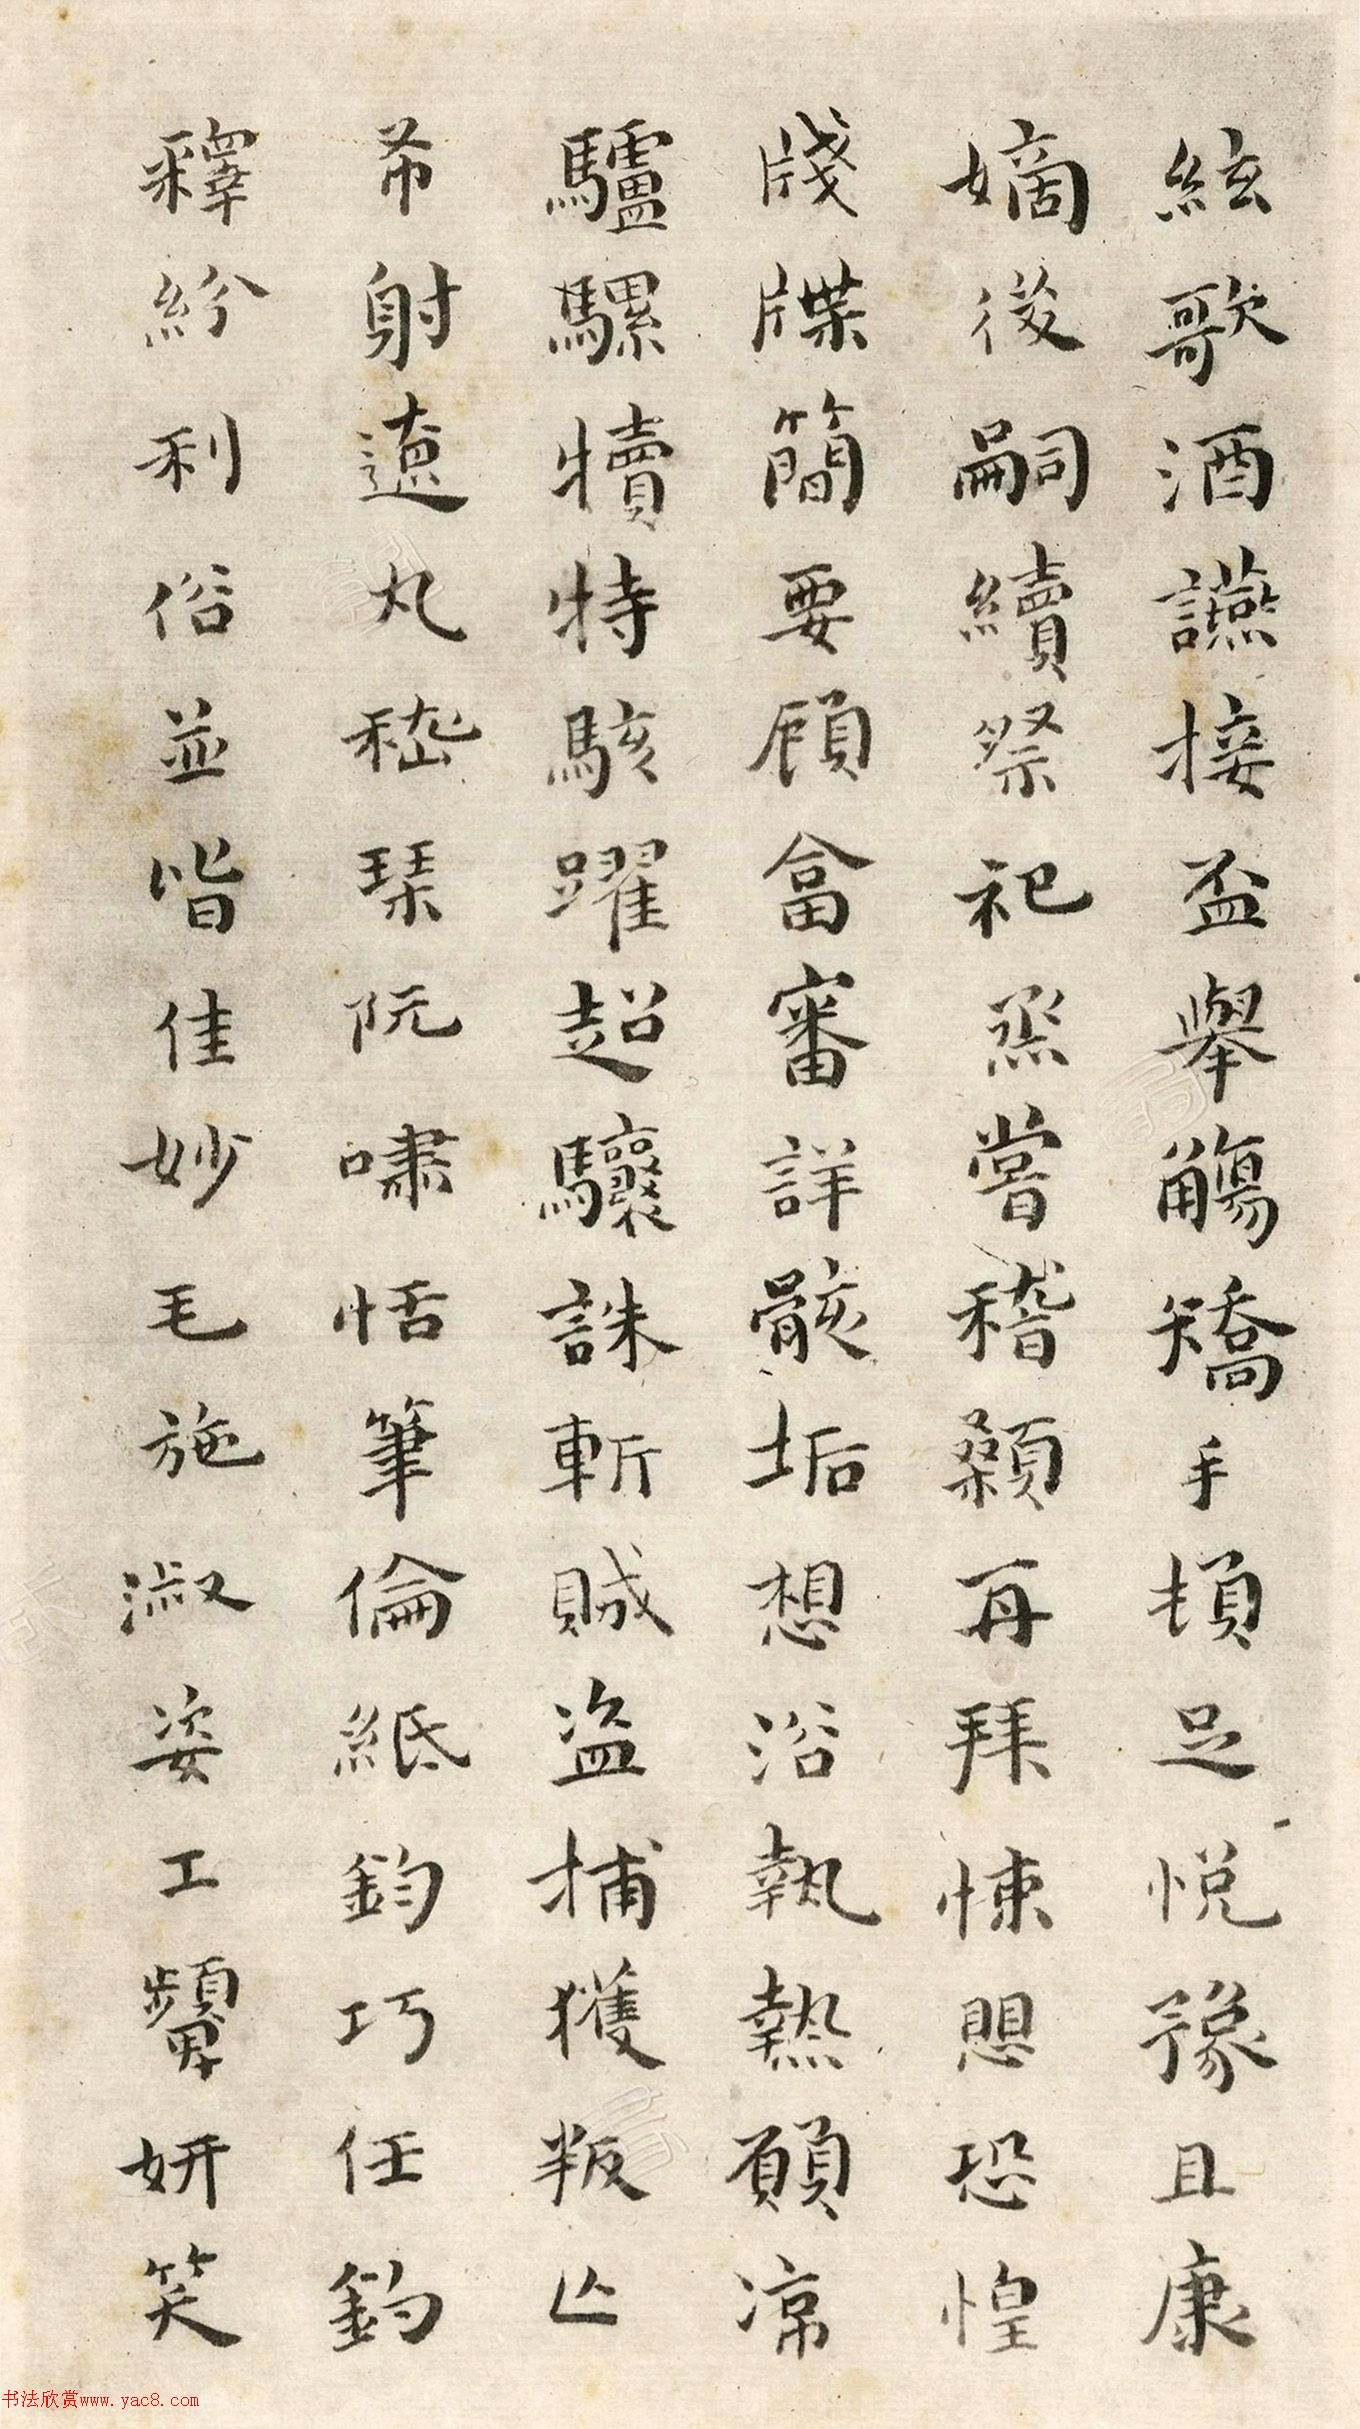 絃歌酒讌接盃舉觴矯手頓足悅豫且康
嫡後嗣續祭祀烝嘗稽顙再拜悚懼恐惶
牋牒簡要顧畣審詳骸垢想浴執熱願涼
驢騾犢特駭躍超驤誅斬賊盜捕獲叛亡
布射遼丸嵇琴阮嘯恬筆倫紙鈞巧任釣
釋紛利俗並皆佳妙毛施淑姿工顰妍笑
书法欣赏www.yac8.com